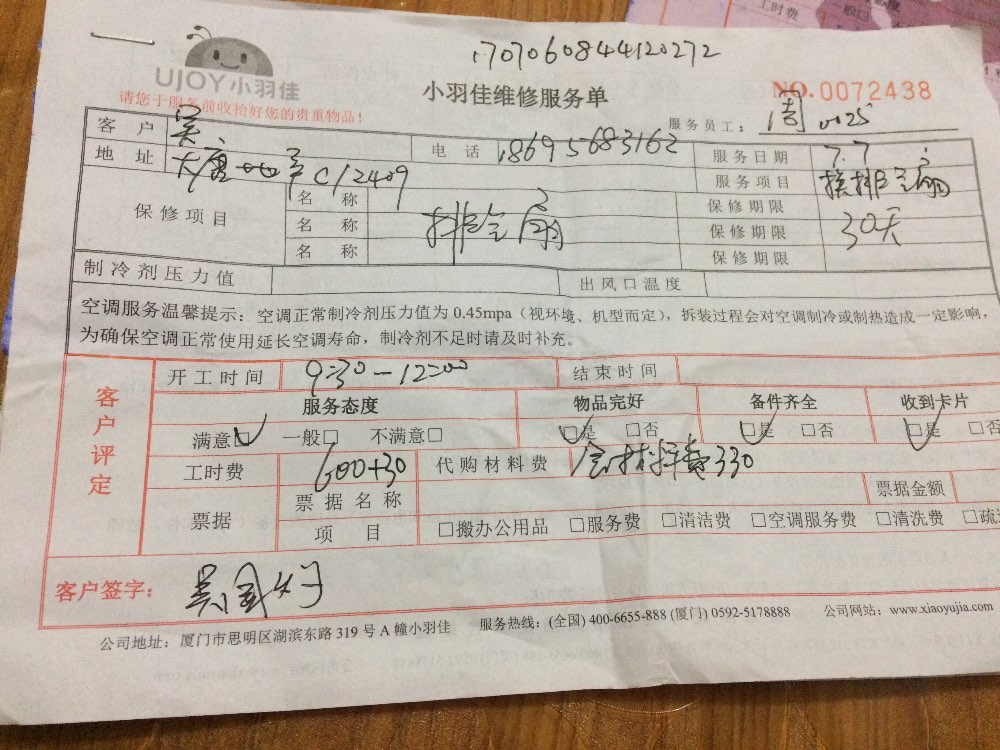 17070608444120272
UJOY小羽佳
小羽佳维修服务单
NO.0072438
请您于服务前收拾好您的贵重物品!
服务员工: 周 0025
客户 吴 电话 18695683162 服务日期 7.7
地址 大唐世家C12409 服务项目 换排气扇
保修项目 名称 排气扇 保修期限 30天
名称 保修期限
名称 保修期限
制冷剂压力值 出风口温度
空调服务温馨提示: 空调正常制冷剂压力值为 0.45mpa(视环境、机型而定), 拆装过程会对空调制冷或制热造成一定影响,
为确保空调正常使用延长空调寿命, 制冷剂不足时请及时补充。
客户评定
开工时间 9:30-12:00 结束时间
服务态度 物品完好 备件齐全 收到卡片
满意□ 一般□ 不满意□ □是 □否 □是 □否 □是 □否
工时费 600+30 代购材料费 含材料费330
票据 票据名称 票据金额
项目 □搬办公用品 □服务费 □清洁费 □空调服务费 □清洗费 □疏
客户签字: 吴国灯
公司地址: 厦门市思明区湖滨东路 319 号 A 幢小羽佳 服务热线: (全国) 400-6655-888 (厦门) 0592-5178888 公司网站: www.xiaoyujia.com
工时费